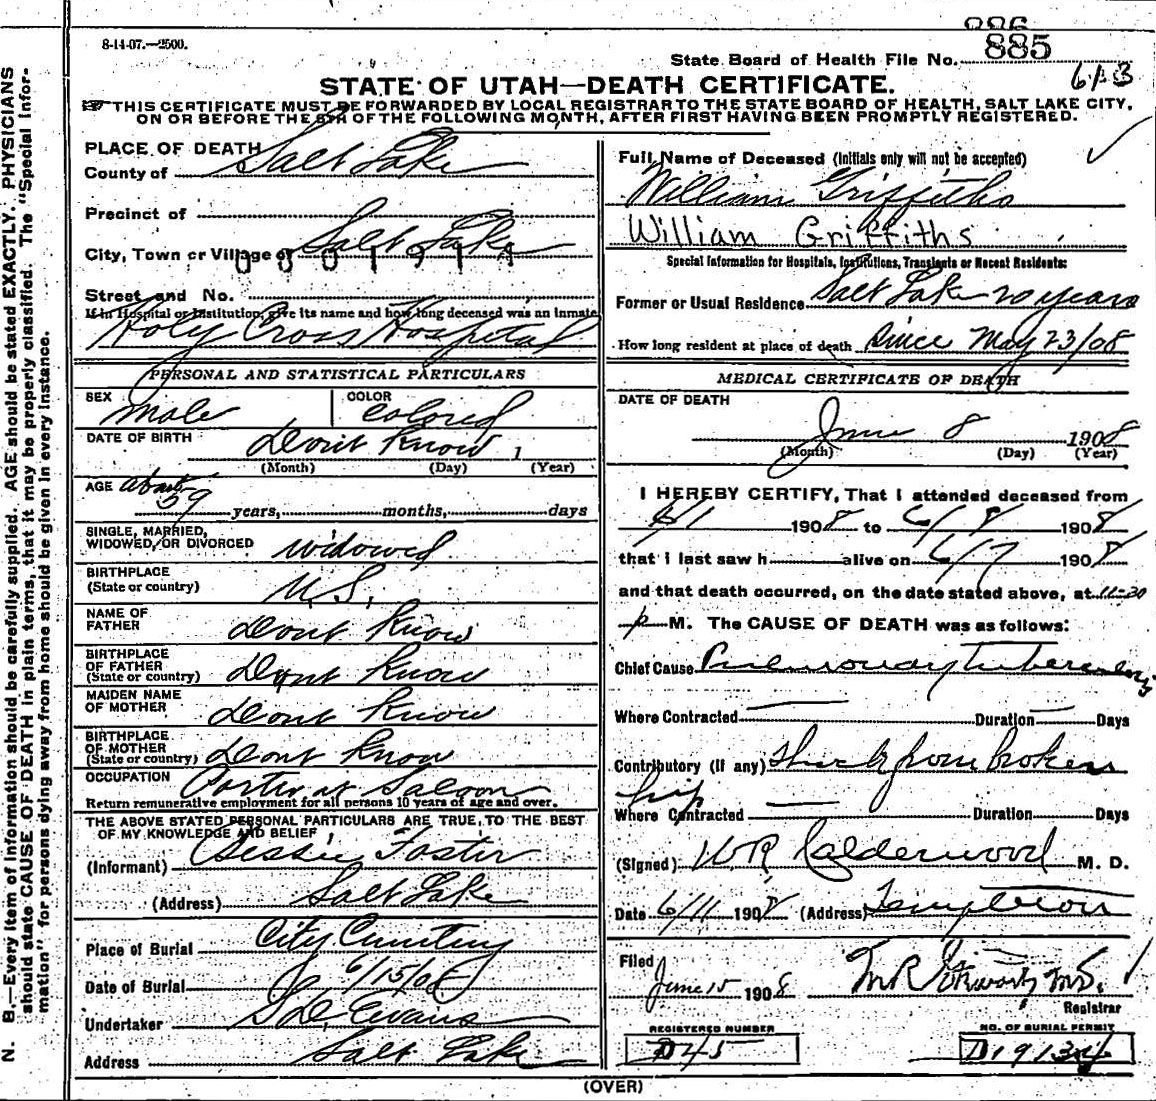 8-14-07.—2500.
886
State Board of Health File No. 885
613
STATE OF UTAH—DEATH CERTIFICATE.
THIS CERTIFICATE MUST BE FORWARDED BY LOCAL REGISTRAR TO THE STATE BOARD OF HEALTH, SALT LAKE CITY,
ON OR BEFORE THE 5TH OF THE FOLLOWING MONTH, AFTER FIRST HAVING BEEN PROMPTLY REGISTERED.
N. B.—Every item of information should be carefully supplied. AGE should be stated EXACTLY. PHYSICIANS
should state CAUSE OF DEATH in plain terms, that it may be properly classified. The "Special Infor-
mation" for persons dying away from home should be given in every instance.
PLACE OF DEATH
County of Salt Lake
Precinct of
City, Town or Village of Salt Lake
Street and No.
If in Hospital or Institution, give its name and how long deceased was an inmate
Holy Cross Hospital
PERSONAL AND STATISTICAL PARTICULARS
SEX male
COLOR colored
DATE OF BIRTH dont know 1
(Month) (Day) (Year)
AGE about
59 years, months, days
SINGLE, MARRIED,
WIDOWED, OR DIVORCED widowed
BIRTHPLACE
(State or country) U.S.
NAME OF
FATHER dont know
BIRTHPLACE
OF FATHER
(State or country) Dont know
MAIDEN NAME
OF MOTHER dont know
BIRTHPLACE
OF MOTHER
(State or country) dont know
OCCUPATION Porter at Saloon
Return remunerative employment for all persons 10 years of age and over.
THE ABOVE STATED PERSONAL PARTICULARS ARE TRUE, TO THE BEST
OF MY KNOWLEDGE AND BELIEF
(Informant) Bessie Foster
(Address) Salt Lake
Place of Burial City Cemetery
Date of Burial 6/15/08
Undertaker Evans
Address Salt Lake
Full Name of Deceased (Initials only will not be accepted)
William Griffiths
William Griffiths
Special Information for Hospitals, Institutions, Transients or Recent Residents:
Former or Usual Residence Salt Lake 20 years
How long resident at place of death Since May 23/08
MEDICAL CERTIFICATE OF DEATH
DATE OF DEATH
June 8 1908
(Month) (Day) (Year)
I HEREBY CERTIFY, That I attended deceased from
6/1 1908 to 6/8 1908
that I last saw h alive on 6/7 1908
and that death occurred, on the date stated above, at 11-30
p M. The CAUSE OF DEATH was as follows:
Chief Cause Pulmonary Tuberculosis
Where Contracted Duration Days
Contributory (if any) Shock from broken
hip
Where Contracted Duration Days
(Signed) W.R. Calderwood M. D.
Date 6/11 1908 (Address) Templeton
Filed
June 15 1908
Registrar
REGISTERED NUMBER
D45
NO. OF BURIAL PERMIT
D19134
(OVER)